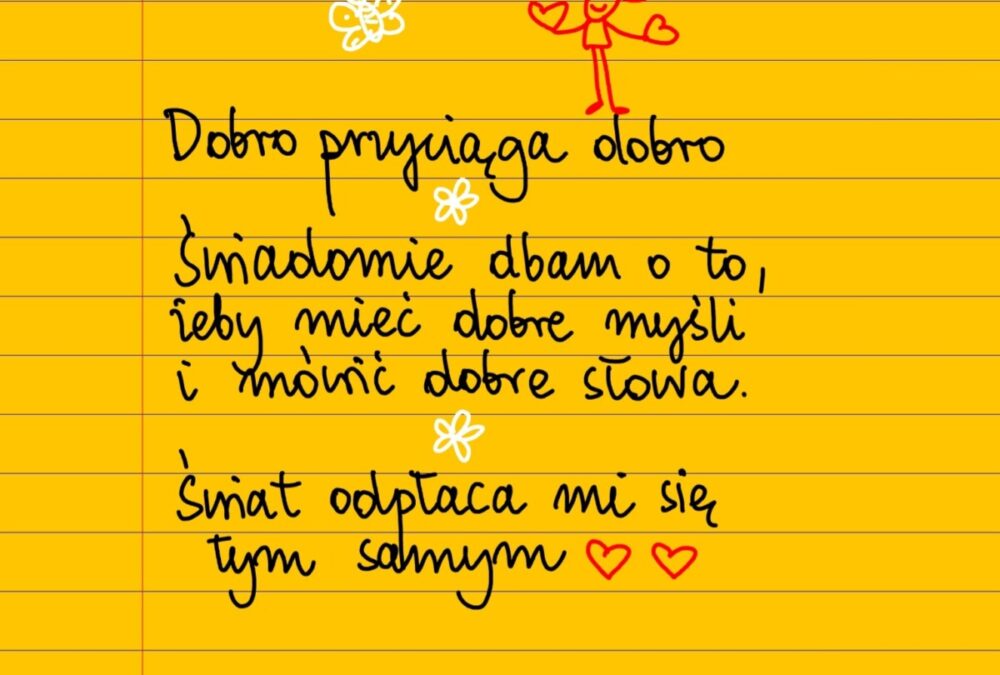 Dobro przyciąga dobro
Świadomie dbam o to,
żeby mieć dobre myśli
i mówić dobre słowa.
Świat odpłaca mi się
tym samym